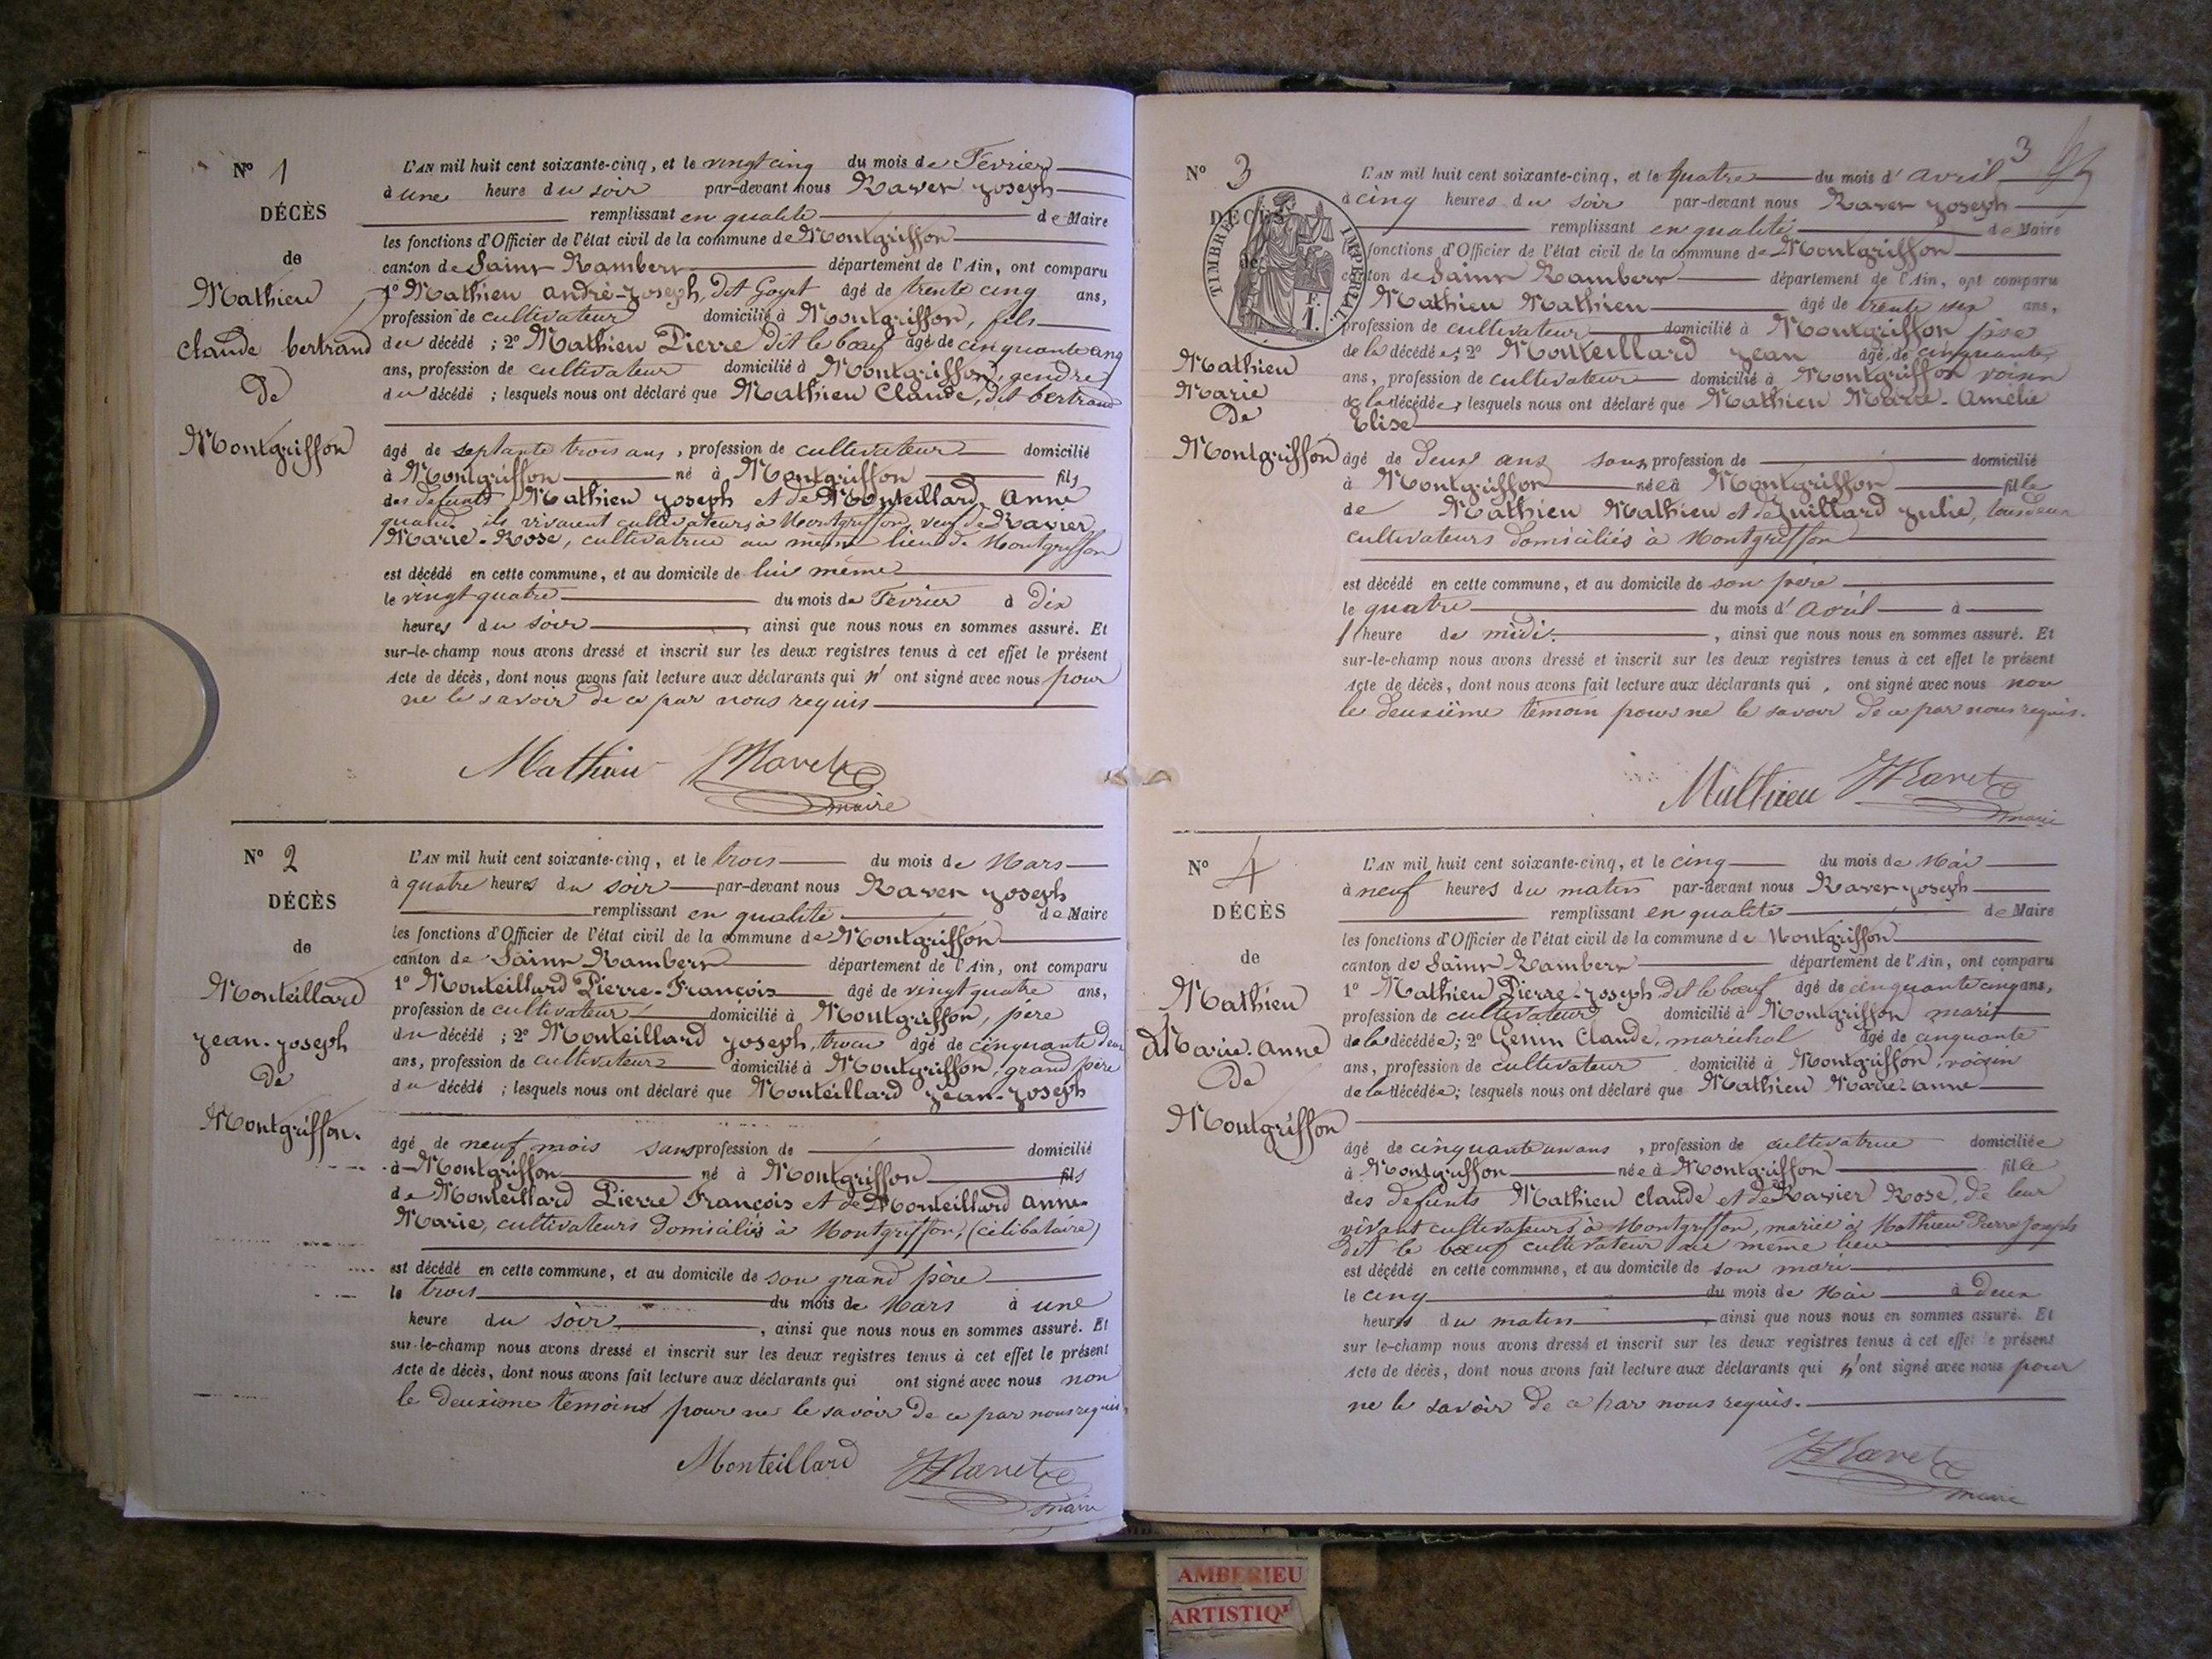 Nº 1
DÉCÈS
de
Mathieu
Claude bertrand
De
Montgriffon
L'AN mil huit cent soixante-cinq, et le vingt cinq du mois de Février
à une heure du soir par-devant nous Ravet Joseph
remplissant en qualité de Maire
les fonctions d'Officier de l'état civil de la commune de Montgriffon
canton de Saint Rambert département de l'Ain, ont comparu
1º Mathieu andré-Joseph, dit Goyet âgé de trente cinq ans,
profession de cultivateur domicilié à Montgriffon, fils
du décédé ; 2º Mathieu Pierre dit le bœuf âgé de cinquante cinq
ans, profession de cultivateur domicilié à Montgriffon, gendre
du décédé ; lesquels nous ont déclaré que Mathieu Claude, dit bertrand
âgé de septante trois ans, profession de cultivateur domicilié
à Montgriffon né à Montgriffon fils
des defunts Mathieu Joseph et de Monteillard Anne
quand ils vivaient cultivateurs à Montgriffon, veuf de Ravier
Marie-Rose, cultivatrice au même lieu de Montgriffon
est décédé en cette commune, et au domicile de lui même
le vingt-quatre du mois de Février à dix
heures du soir, ainsi que nous nous en sommes assuré. Et
sur-le-champ nous avons dressé et inscrit sur les deux registres tenus à cet effet le présent
Acte de décès, dont nous avons fait lecture aux déclarants qui n'ont signé avec nous pour
ne le savoir de ce par nous requis
Mathieu JRavet
maire
Nº 2
DÉCÈS
de
Monteillard
Jean-Joseph
De
Montgriffon.
L'AN mil huit cent soixante-cinq, et le trois du mois de Mars
à quatre heures du soir par-devant nous Ravet Joseph
remplissant en qualité de Maire
les fonctions d'Officier de l'état civil de la commune de Montgriffon
canton de Saint Rambert département de l'Ain, ont comparu
1º Monteillard Pierre-François âgé de vingt quatre ans,
profession de cultivateur domicilié à Montgriffon, père
du décédé ; 2º Monteillard Joseph, âgé de cinquante deux
ans, profession de cultivateur domicilié à Montgriffon, grand père
du décédé ; lesquels nous ont déclaré que Monteillard Jean-Joseph
âgé de neuf mois sans profession de domicilié
à Montgriffon né à Montgriffon fils
de Monteillard Pierre François et de Monteillard Anne
Marie, cultivateurs domiciliés à Montgriffon, (célibataire)
est décédé en cette commune, et au domicile de son grand père
le trois du mois de Mars à une
heure du soir, ainsi que nous nous en sommes assuré. Et
sur-le-champ nous avons dressé et inscrit sur les deux registres tenus à cet effet le présent
Acte de décès, dont nous avons fait lecture aux déclarants qui ont signé avec nous non
le deuxième temoins pour ne le savoir de ce par nous requis
Monteillard JRavet
maire
3
Nº 3
DÉCÈS
de
TIMBRE IMPÉRIAL
F.
1.
Mathieu
Marie
De
Montgriffon
L'AN mil huit cent soixante-cinq, et le quatre du mois d'avril
à cinq heures du soir par-devant nous Ravet Joseph
remplissant en qualité de Maire
les fonctions d'Officier de l'état civil de la commune de Montgriffon
canton de Saint Rambert département de l'Ain, ont comparu
Mathieu Mathieu âgé de trente six ans,
profession de cultivateur domicilié à Montgriffon père
de la décédée ; 2º Monteillard Jean âgé de cinquante
ans, profession de cultivateur domicilié à Montgriffon voisin
de la décédée, lesquels nous ont déclaré que Mathieu Marie-Amélie
Elise
âgé de deux ans sans profession de domicilié
à Montgriffon née à Montgriffon fille
de Mathieu Mathieu et de Juillard Julie, tous deux
cultivateurs domiciliés à Montgriffon
est décédé en cette commune, et au domicile de son père
le quatre du mois d'avril à
1 heure de midi, ainsi que nous nous en sommes assuré. Et
sur-le-champ nous avons dressé et inscrit sur les deux registres tenus à cet effet le présent
Acte de décès, dont nous avons fait lecture aux déclarants qui, ont signé avec nous non
le deuxième témoin pour ne le savoir de ce par nous requis.
Mathieu JRavet
maire
Nº 4
DÉCÈS
de
Mathieu
Marie-Anne
De
Montgriffon
L'AN mil huit cent soixante-cinq, et le cinq du mois de Mai
à neuf heures du matin par-devant nous Ravet Joseph
remplissant en qualité de Maire
les fonctions d'Officier de l'état civil de la commune de Montgriffon
canton de Saint Rambert département de l'Ain, ont comparu
1º Mathieu Pierre-Joseph dit le bœuf âgé de cinquante cinq ans,
profession de cultivateur domicilié à Montgriffon marit
de la décédée ; 2º Genin Claude, maréchal âgé de cinquante
ans, profession de cultivateur domicilié à Montgriffon, voisin
de la décédée ; lesquels nous ont déclaré que Mathieu Marie-anne
âgé de cinquante un ans, profession de cultivatrice domiciliée
à Montgriffon née à Montgriffon fille
des defunts Mathieu Claude et de Ravier Rose, de leur
vivant cultivateurs à Montgriffon, mariée à Mathieu Pierre Joseph
dit le bœuf cultivateur au même lieu
est décédé en cette commune, et au domicile de son mari
le cinq du mois de Mai à deux
heures du matin, ainsi que nous nous en sommes assuré. Et
sur le-champ nous avons dressé et inscrit sur les deux registres tenus à cet effet le présent
Acte de décès, dont nous avons fait lecture aux déclarants qui n'ont signé avec nous pour
ne le savoir de ce par nous requis.
JRavet
maire
AMBERIEU
ARTISTIQU